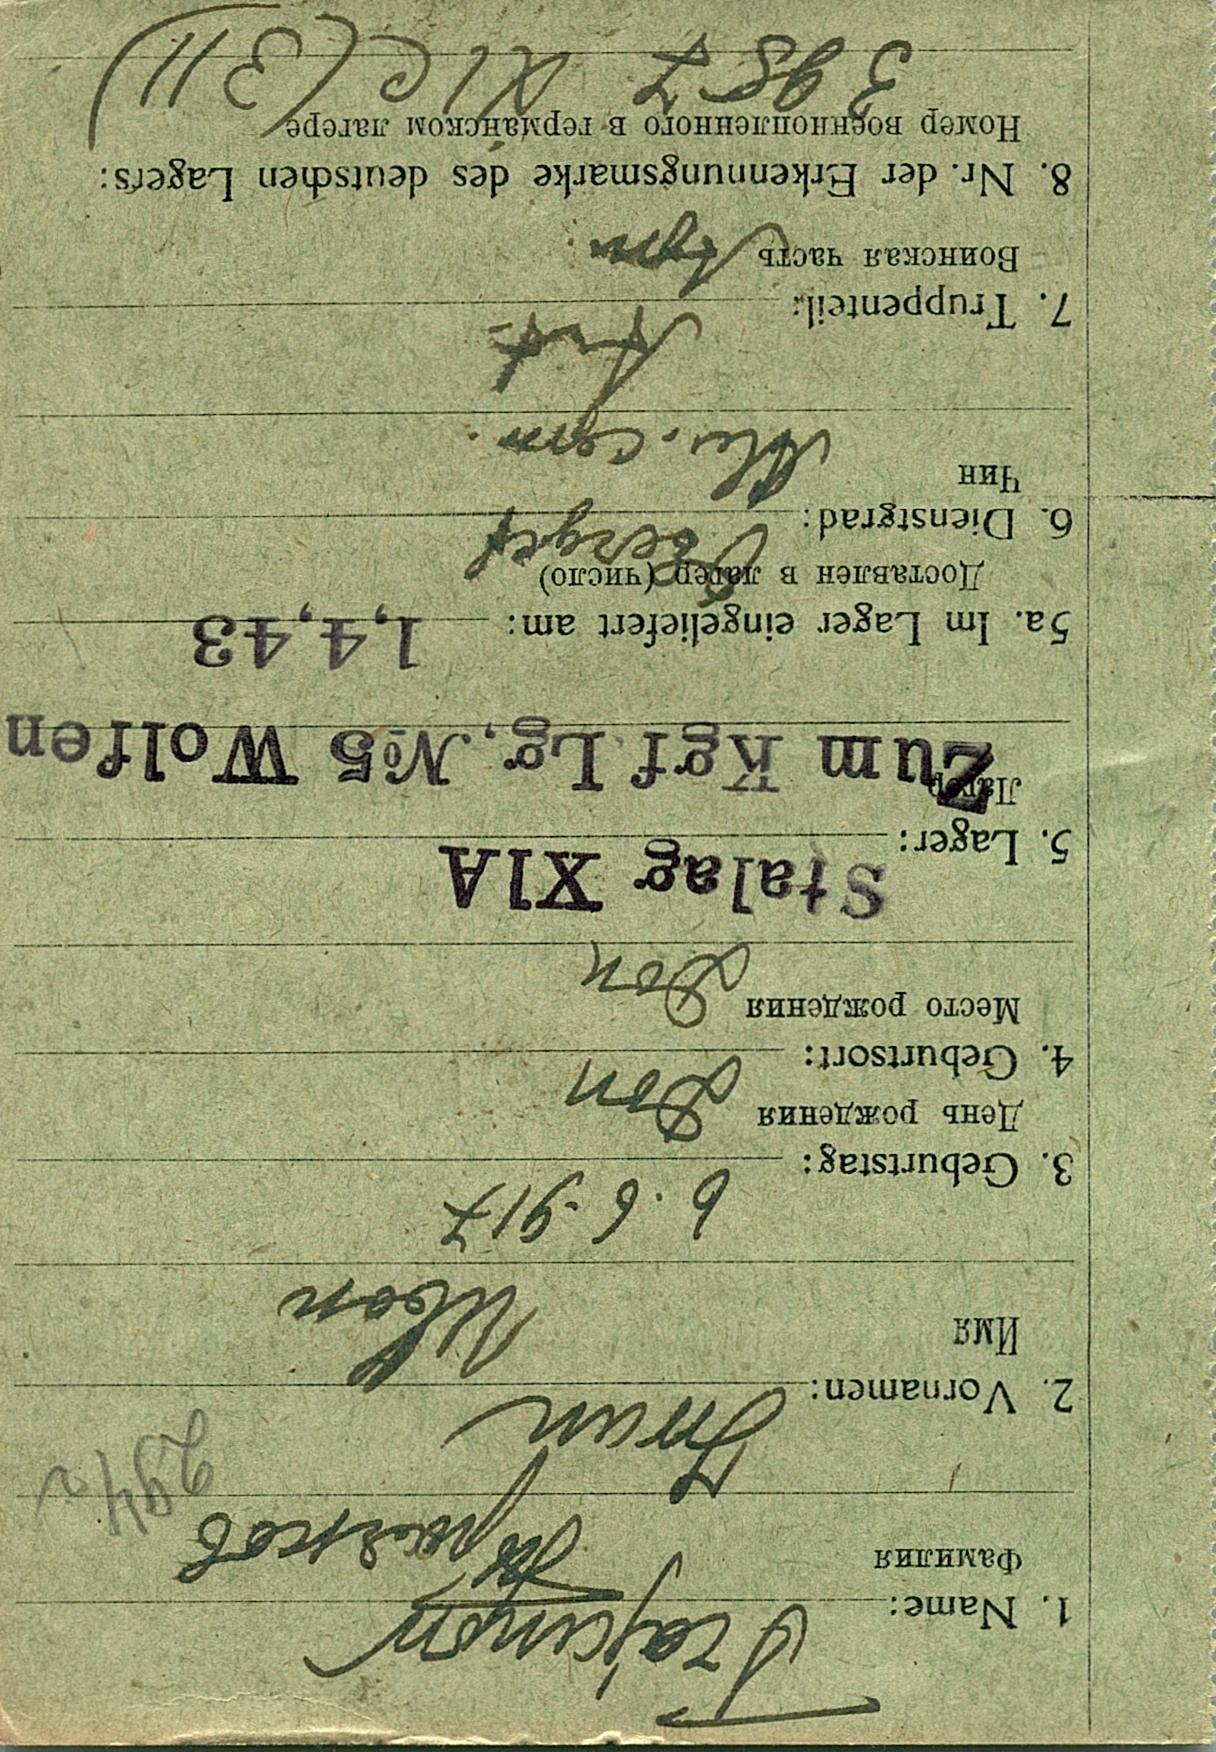 1. Name:
Фамилия
2. Vornamen: Iwan
Имя Иван
6.6.917
3. Geburtstag:
День рождения Don
4. Geburtsort:
Место рождения Don
Stalag XIA
5. Lager:
Лагерь
Zum Kgf Lg. №5 Wolfen
5a. Im Lager eingeliefert am: 1,4,43
Доставлен в лагер (число)
6. Dienstgrad:
Чин
7. Truppenteil:
Воинская часть
8. Nr. der Erkennungsmarke des deutschen Lagers:
Номер военнопленного в германском лагере
3957 XIC (311)
294